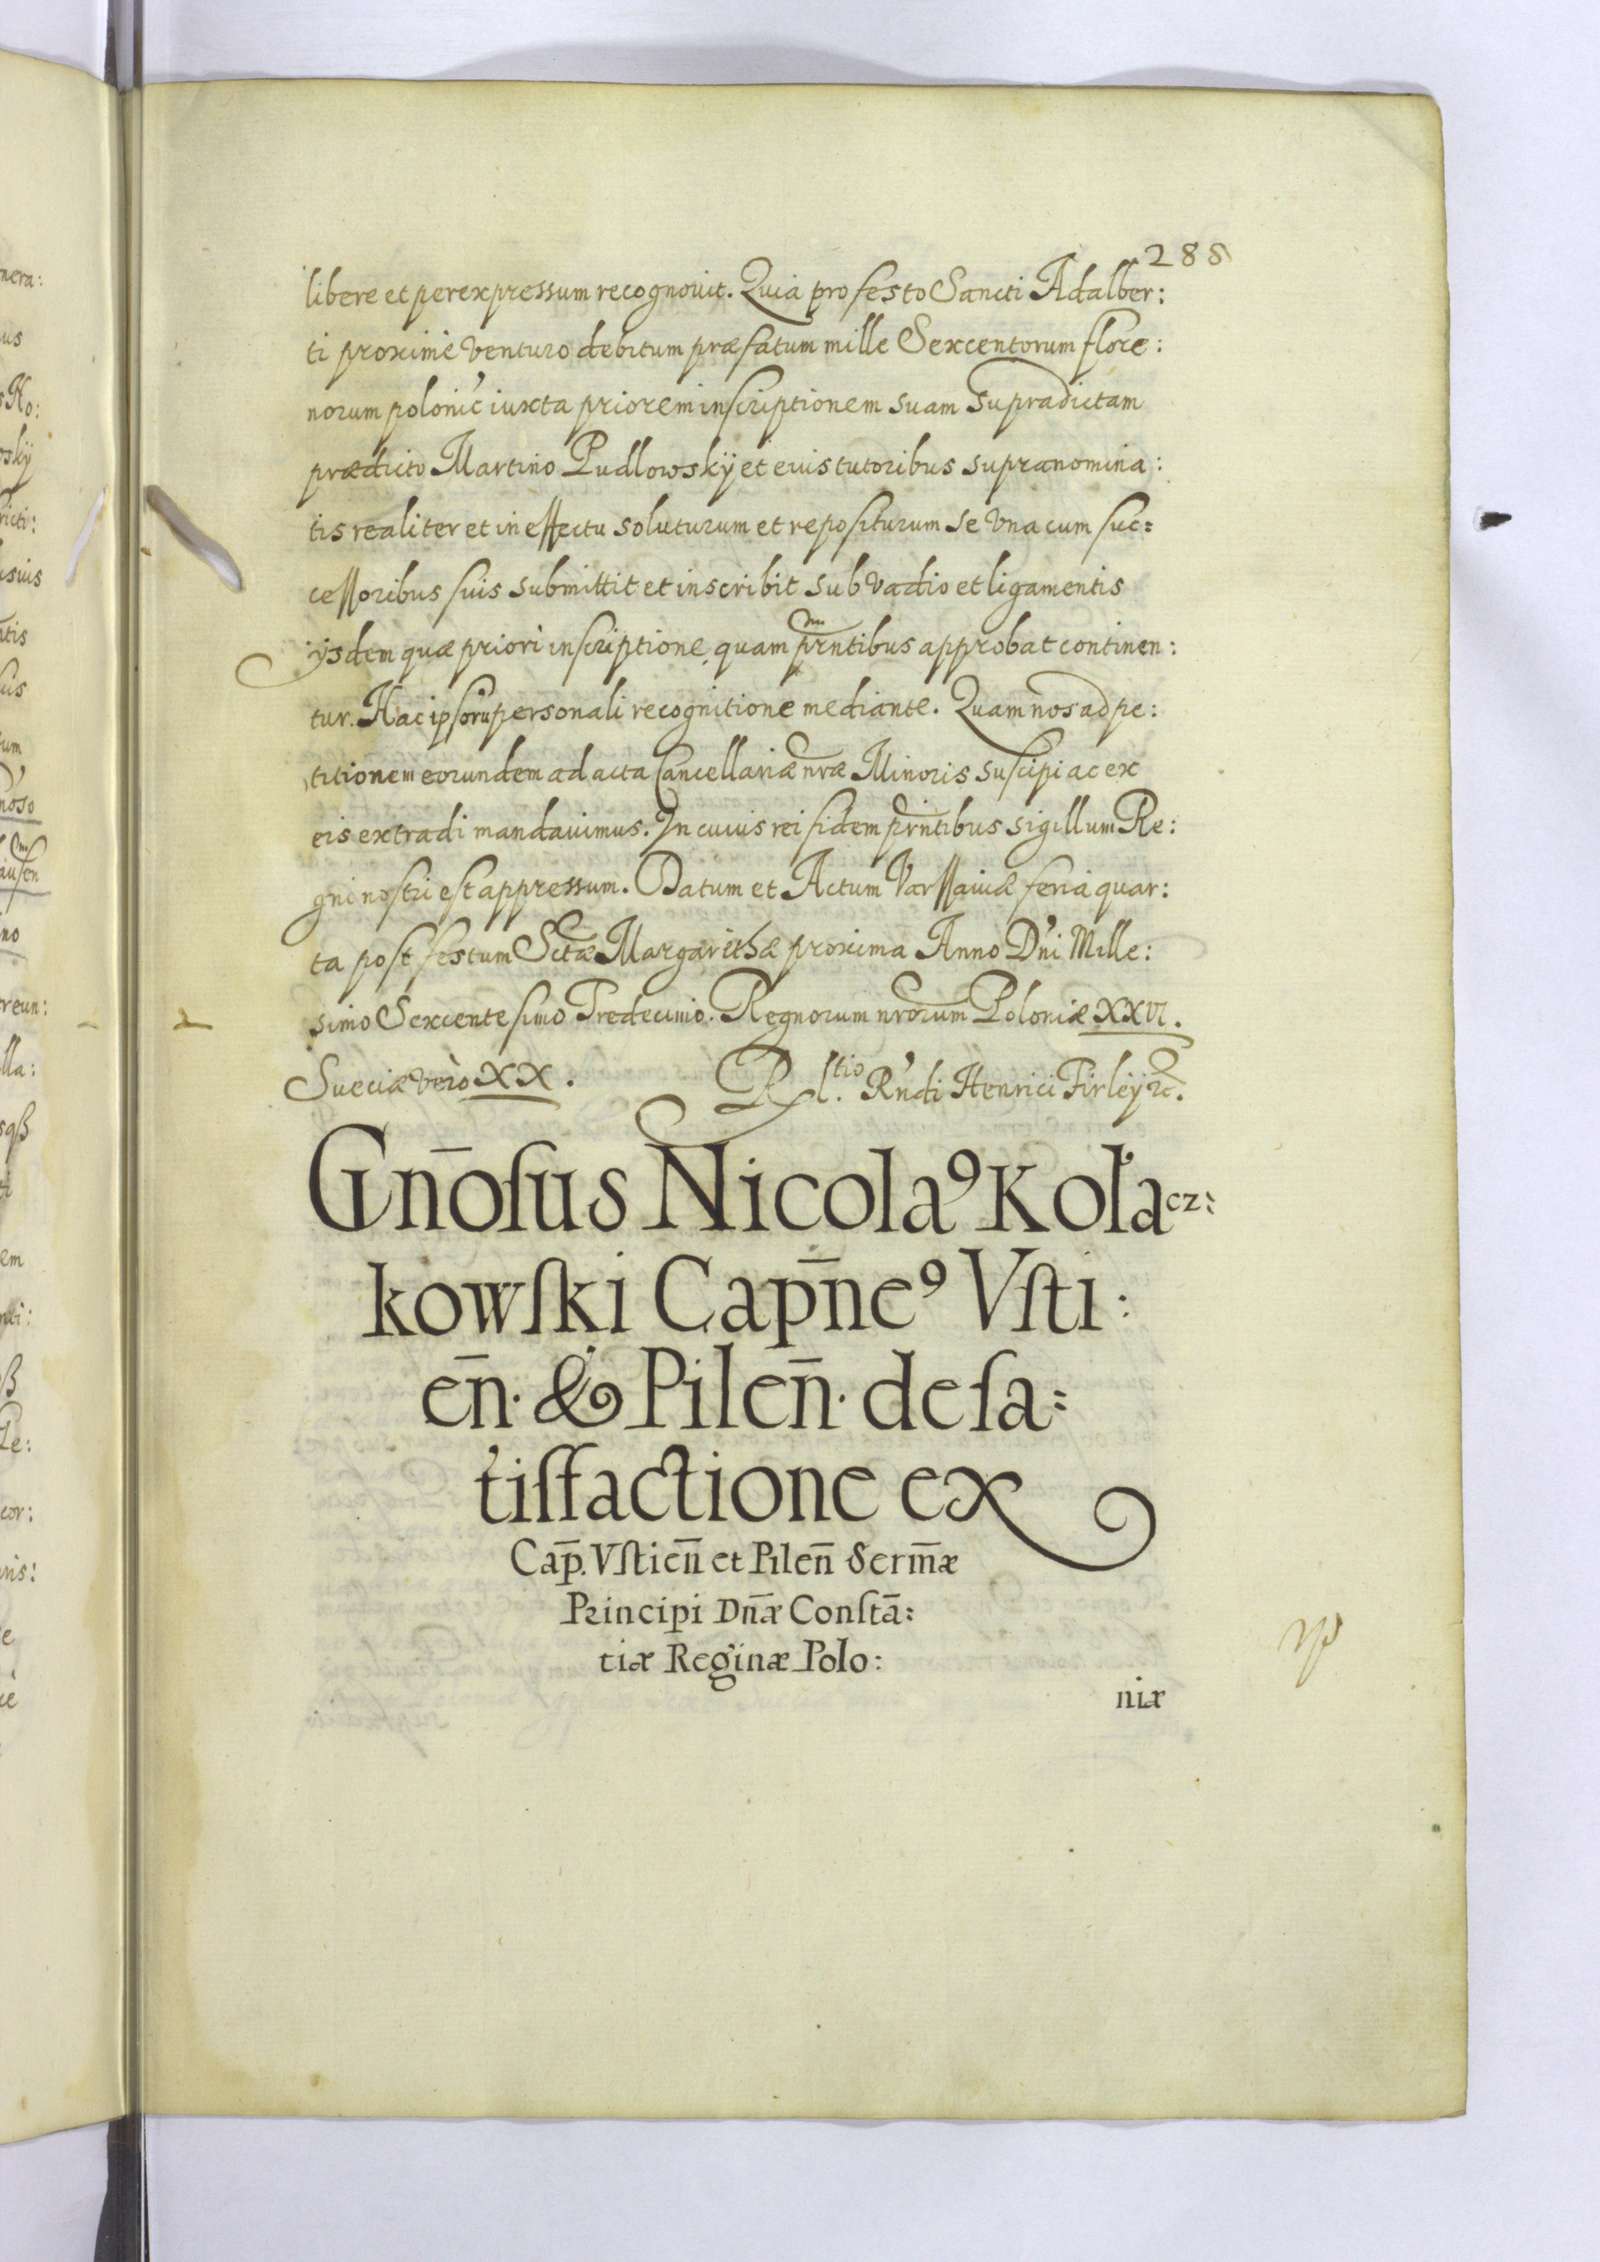 288
libere et per expressum recognovit. Quia pro festo Sancti Adalber:
ti proximè venturo debitum præfatum mille Sexcentorum flore:
norum polonic' iuxta priorem inscriptionem suam supradictam
prædicto Martino Pudlowskÿ et eius tutoribus supranomina:
tis realiter et in effectu soluturum et repositurum se vna cum suc:
cessoribus suis submittit et inscribit sub vadio et ligamentis
ijsdem quæ priori inscriptione, quam prntibus approbat continen:
tur. Hac ipsorū personali recognitione mediante. Quam nos ad pe:
titionem eorundem ad acta Cancellariæ nræ Minoris suscipi ac ex
eis extradi mandavimus. In cuius rei fidem prntibus sigillum Re:
gni nostri est appressum. Datum et Actum Varssaviæ feria quar:
ta post festum Sctæ Margarithæ proxima Anno D'ni Mille:
simo Sexcentesimo Tredecimo. Regnorum nrorum Poloniæ XXVI.
Sueciæ verò XX. Rltio. R'ndi Henrici Firleÿ ꝛc.
Gn̄osus Nicolaꝰ Kołacz:
kowski Cap̄neꝰ Vsti:
en̄. & Pilen̄. de sa:
tisfactione ex
Cap̄. Vstien̄ et Pilen̄ Serm̄æ
Principi Dn̄æ Constā:
tiæ Reginæ Polo:
niæ